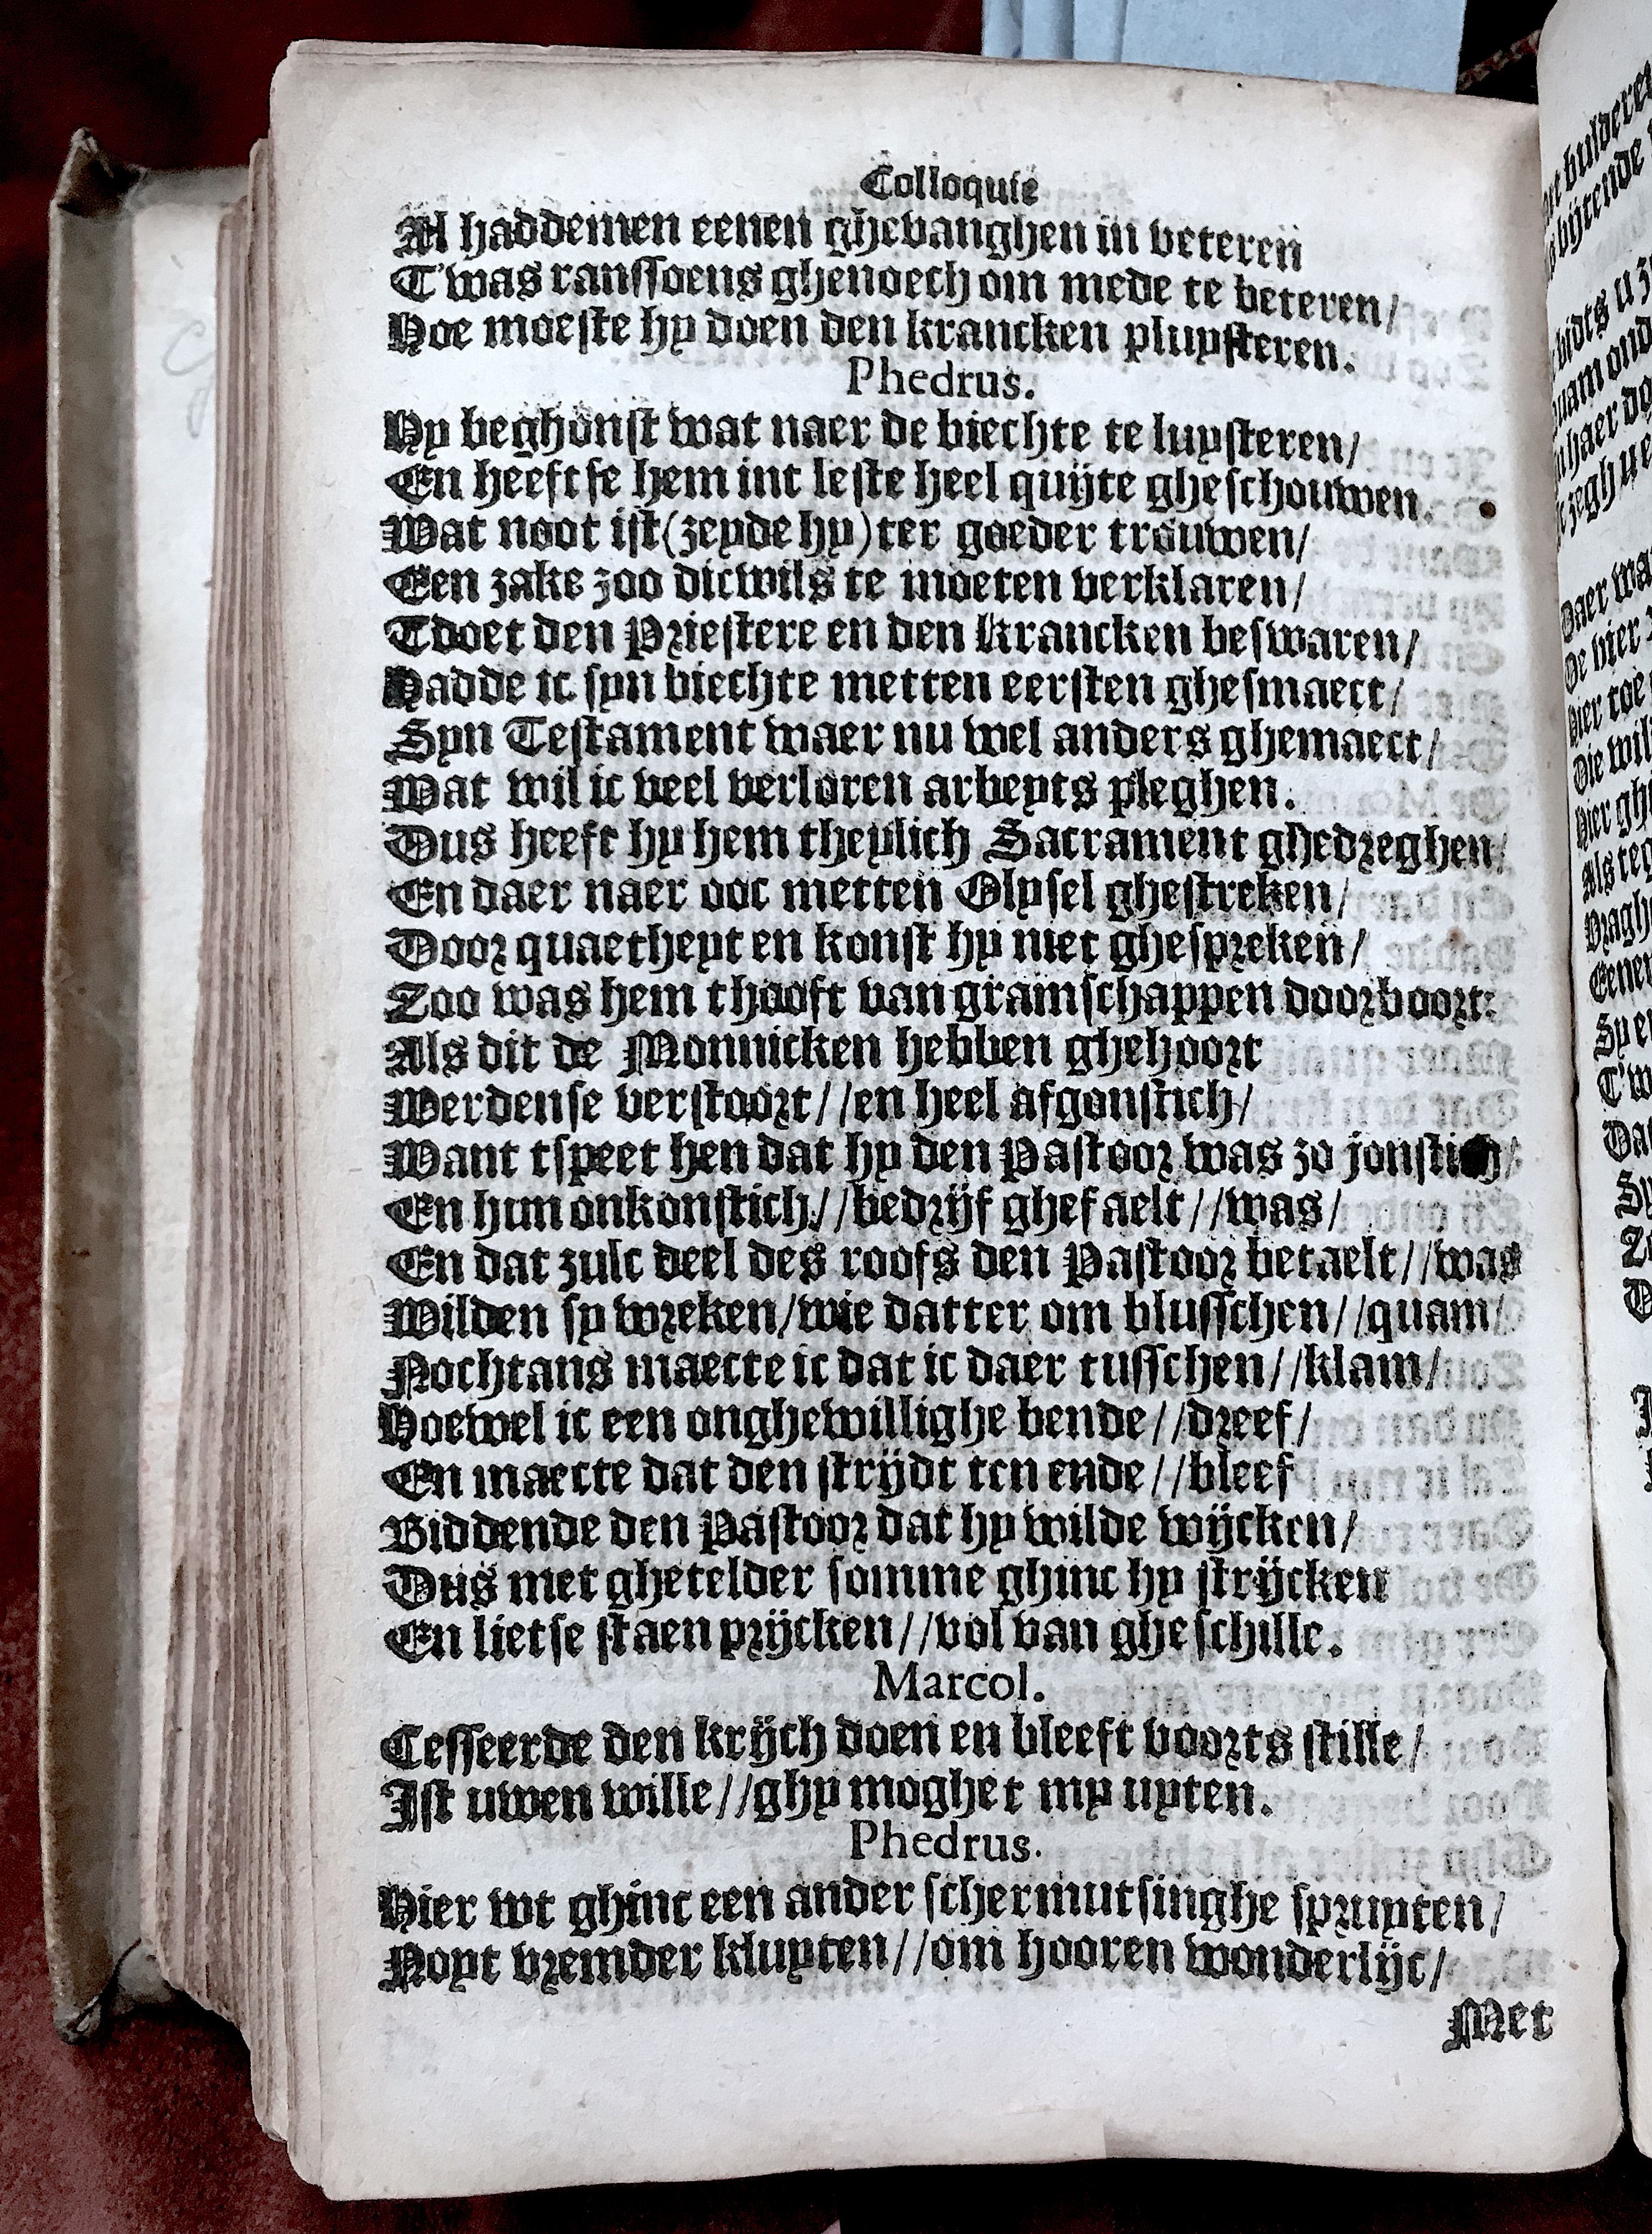 Colloquie
Al haddemen eenen ghevanghen in veteren
T'was ranssoens ghenoech om mede te beteren/
Hoe moeste hy doen den krancken pluysteren.
Phedrus.
Hy beghonst wat naer de biechte te luysteren/
En heeftse hem int leste heel quijte gheschouwen.
Wat noot ist (zeyde hy) ter goeder trouwen/
Een zake zoo dicwils te moeten verklaren/
Tdoet den Priestere en den Krancken beswaren/
Hadde ic syn biechte metten eersten ghesmaect/
Syn Testament waer nu wel anders ghemaect/
Wat wil ic veel verloren arbeyts pleghen.
Dus heeft hy hem theylich Sacrament ghedreghen/
En daer naer ooc metten Olysel ghestreken/
Door quaetheyt en konst hy niet ghespreken/
Zoo was hem thooft van gramschappen doorboort:
Als dit de Monnicken hebben ghehoort
Werdense verstoort//en heel afgonstich/
Want tspeet hen dat hy den Pastoor was zo jonstich/
En hun onkonstich//bedrijf ghefaelt//was/
En dat zulc deel des roofs den Pastoor betaelt//was
Wilden sy wreken/wie datter om blusschen//quam/
Nochtans maecte ic dat ic daer tusschen//klam/
Hoewel ic een onghewillighe bende//dreef/
En maecte dat den strijdt ten ende//bleef
Biddende den Pastoor dat hy wilde wijcken/
Dus met ghetelder somme ghinc hy strijcken
En lietse staen prijcken//vol van gheschille.
Marcol.
Cesseerde den krijch doen en bleeft voorts stille/
Ist uwen wille//ghy moghet my uyten.
Phedrus.
Hier wt ghinc een ander schermutsinghe spruyten/
Noyt vremder kluyten//om hooren wonderlijc/
Met